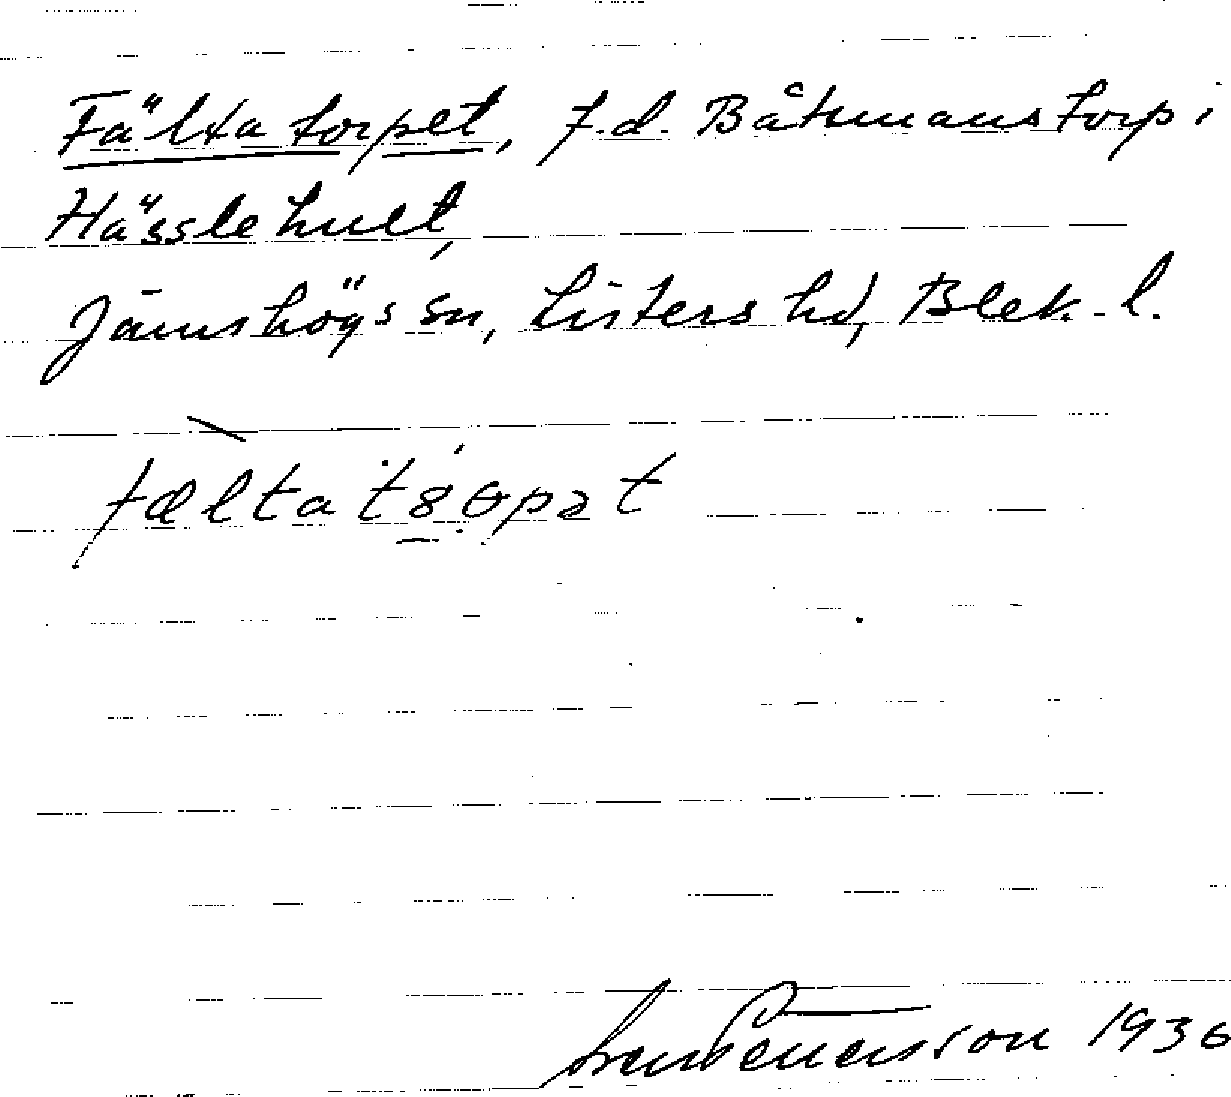 Fältatorpet, f.d. Båtsmanstorp i
Hässlehult,
Jämshögs sn, Listers hd, Blek. l.
1936